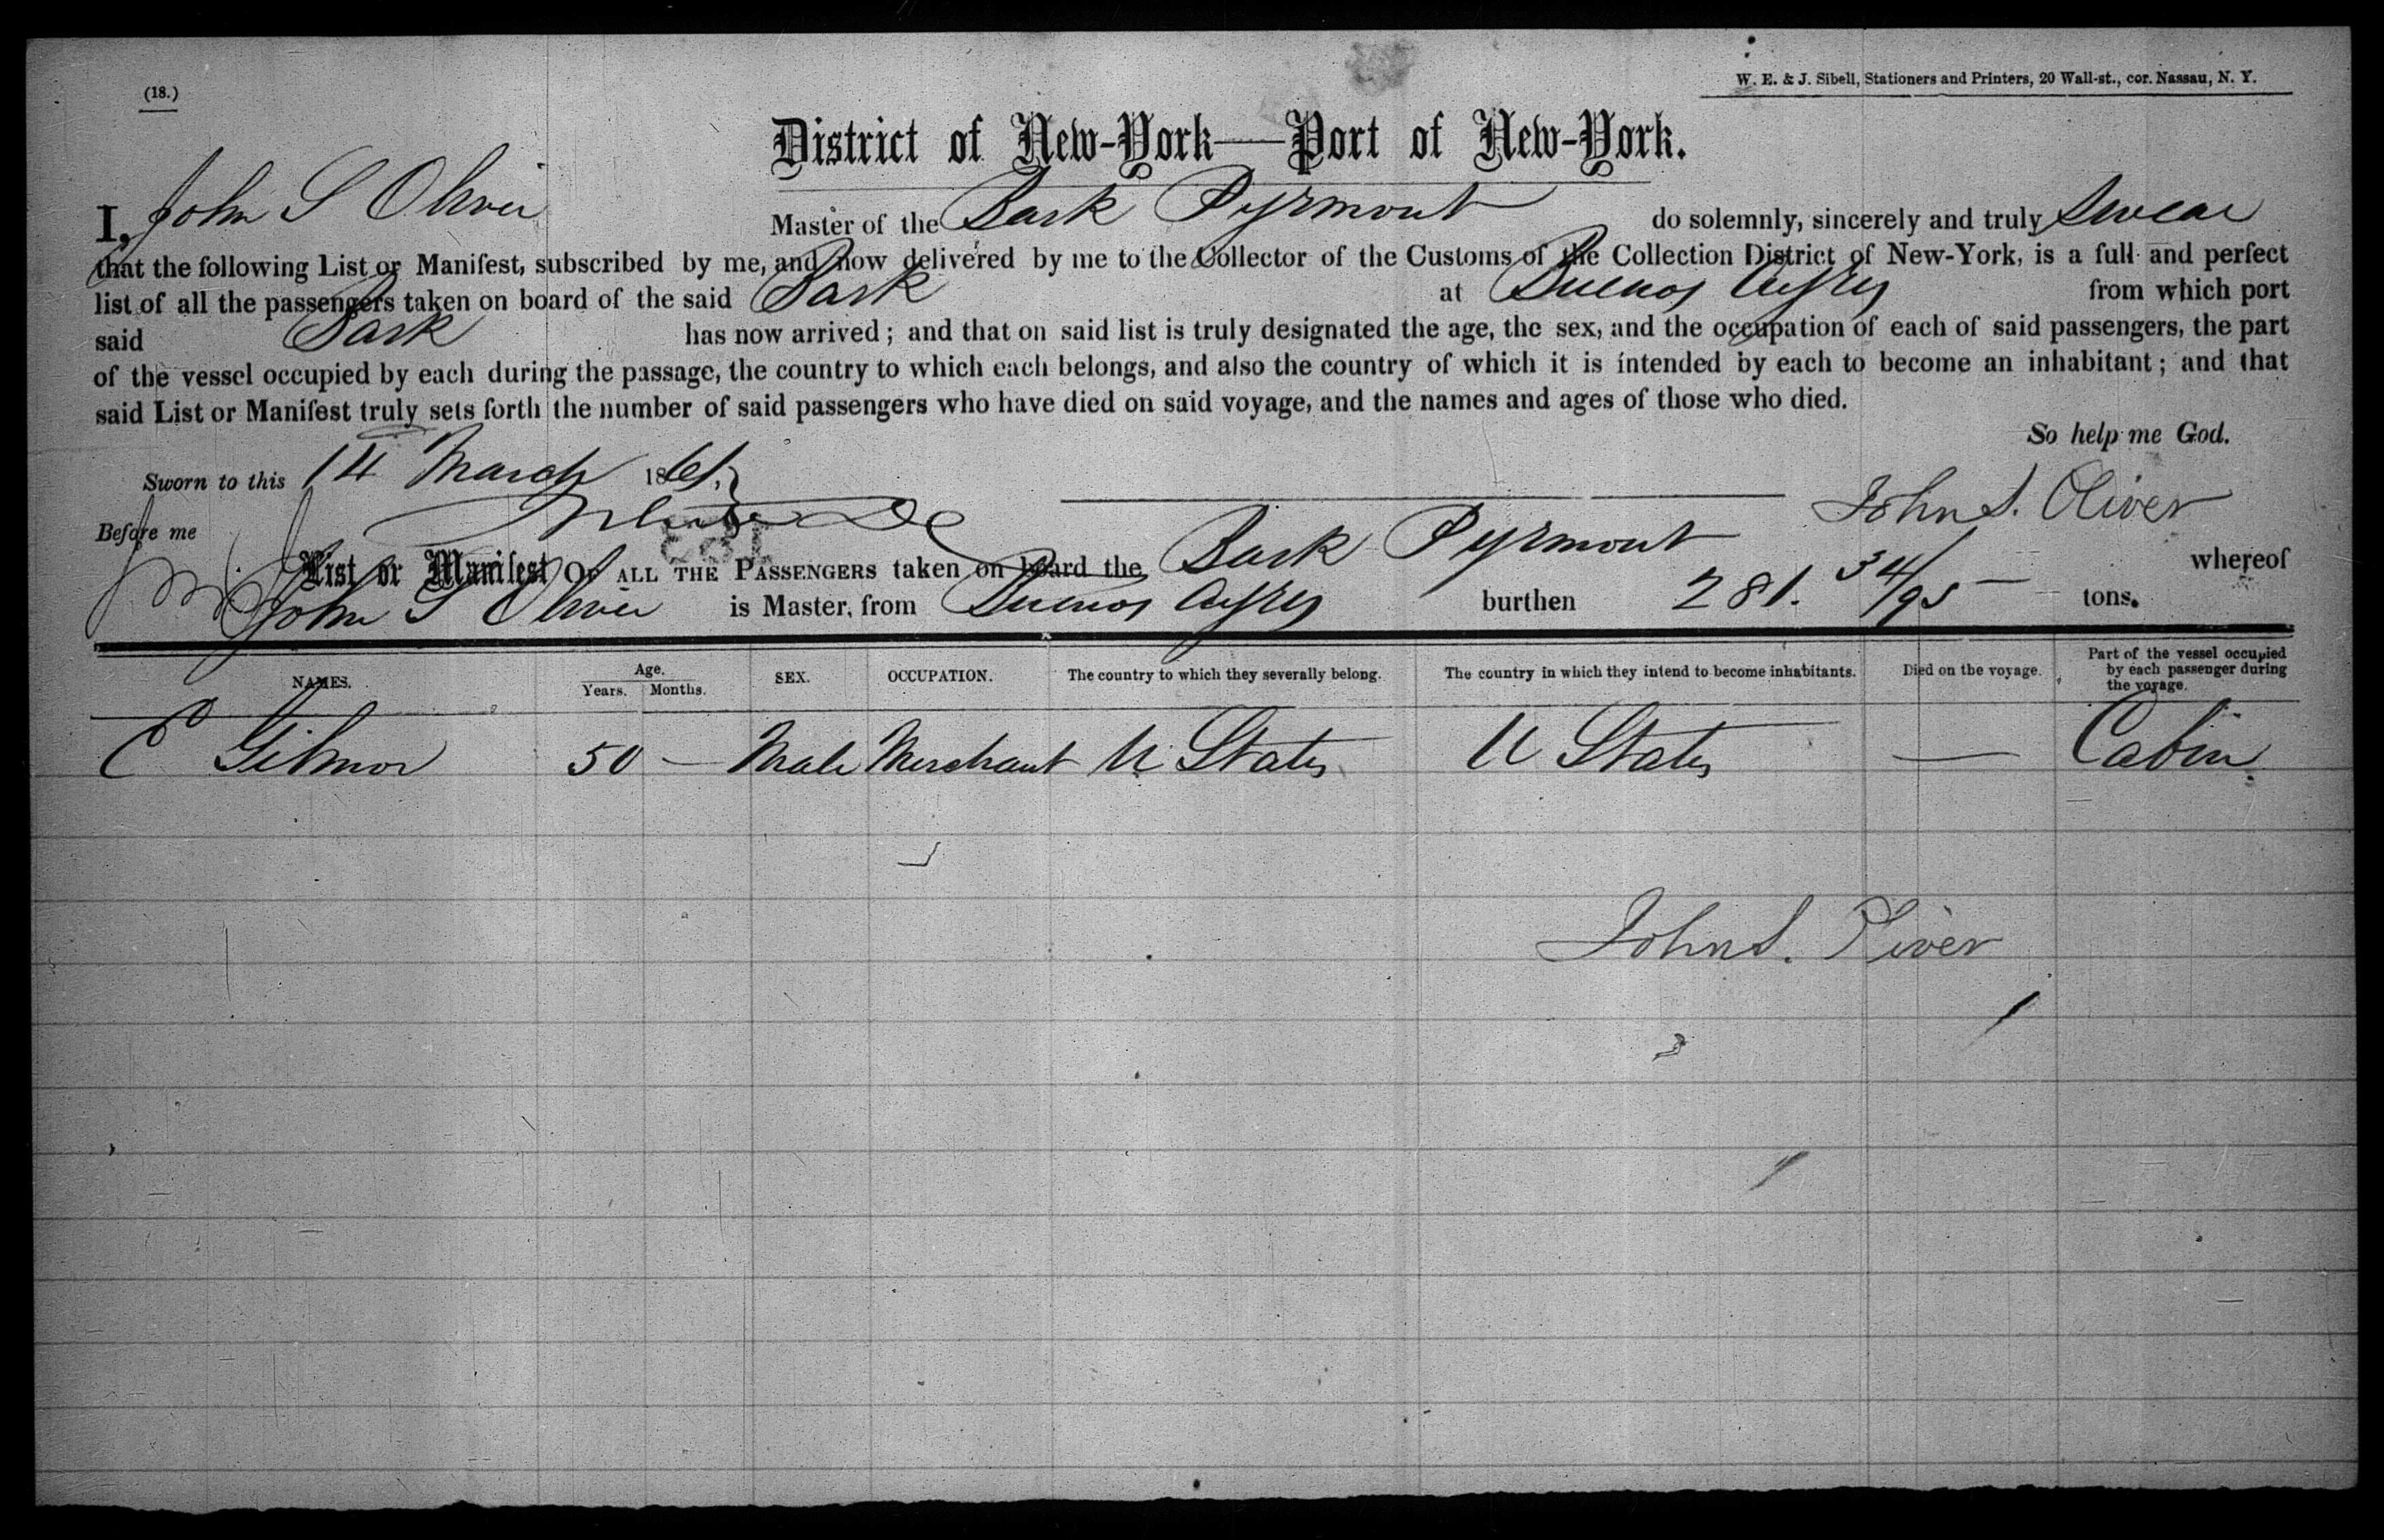 (18.)
W. E. & J. Sibell, Stationers and Printers, 20 Wall-st., cor. Nassau, N. Y.
District of New-York—Port of New-York.
I, John S Oliver Master of the Bark Pyrmont do solemnly, sincerely and truly Swear
that the following List or Manifest, subscribed by me, and now delivered by me to the Collector of the Customs of the Collection District of New-York, is a full and perfect
list of all the passengers taken on board of the said Bark at Buenos Ayres from which port
said Bark has now arrived; and that on said list is truly designated the age, the sex, and the occupation of each of said passengers, the part
of the vessel occupied by each during the passage, the country to which each belongs, and also the country of which it is intended by each to become an inhabitant; and that
said List or Manifest truly sets forth the number of said passengers who have died on said voyage, and the names and ages of those who died.
So help me God.
Sworn to this 14 March 1861.
John S. Oliver
Before me
List or Manifest OF ALL THE PASSENGERS taken on board the Bark Pyrmont whereof
John S Oliver is Master, from Buenos Ayres burthen 281. 34/95 tons.
NAMES. Age. Years. Months. SEX. OCCUPATION. The country to which they severally belong. The country in which they intend to become inhabitants. Died on the voyage. Part of the vessel occupied by each passenger during the voyage.
E Gilmor 50 — Male Merchant U States U States — Cabin
John S. Oliver